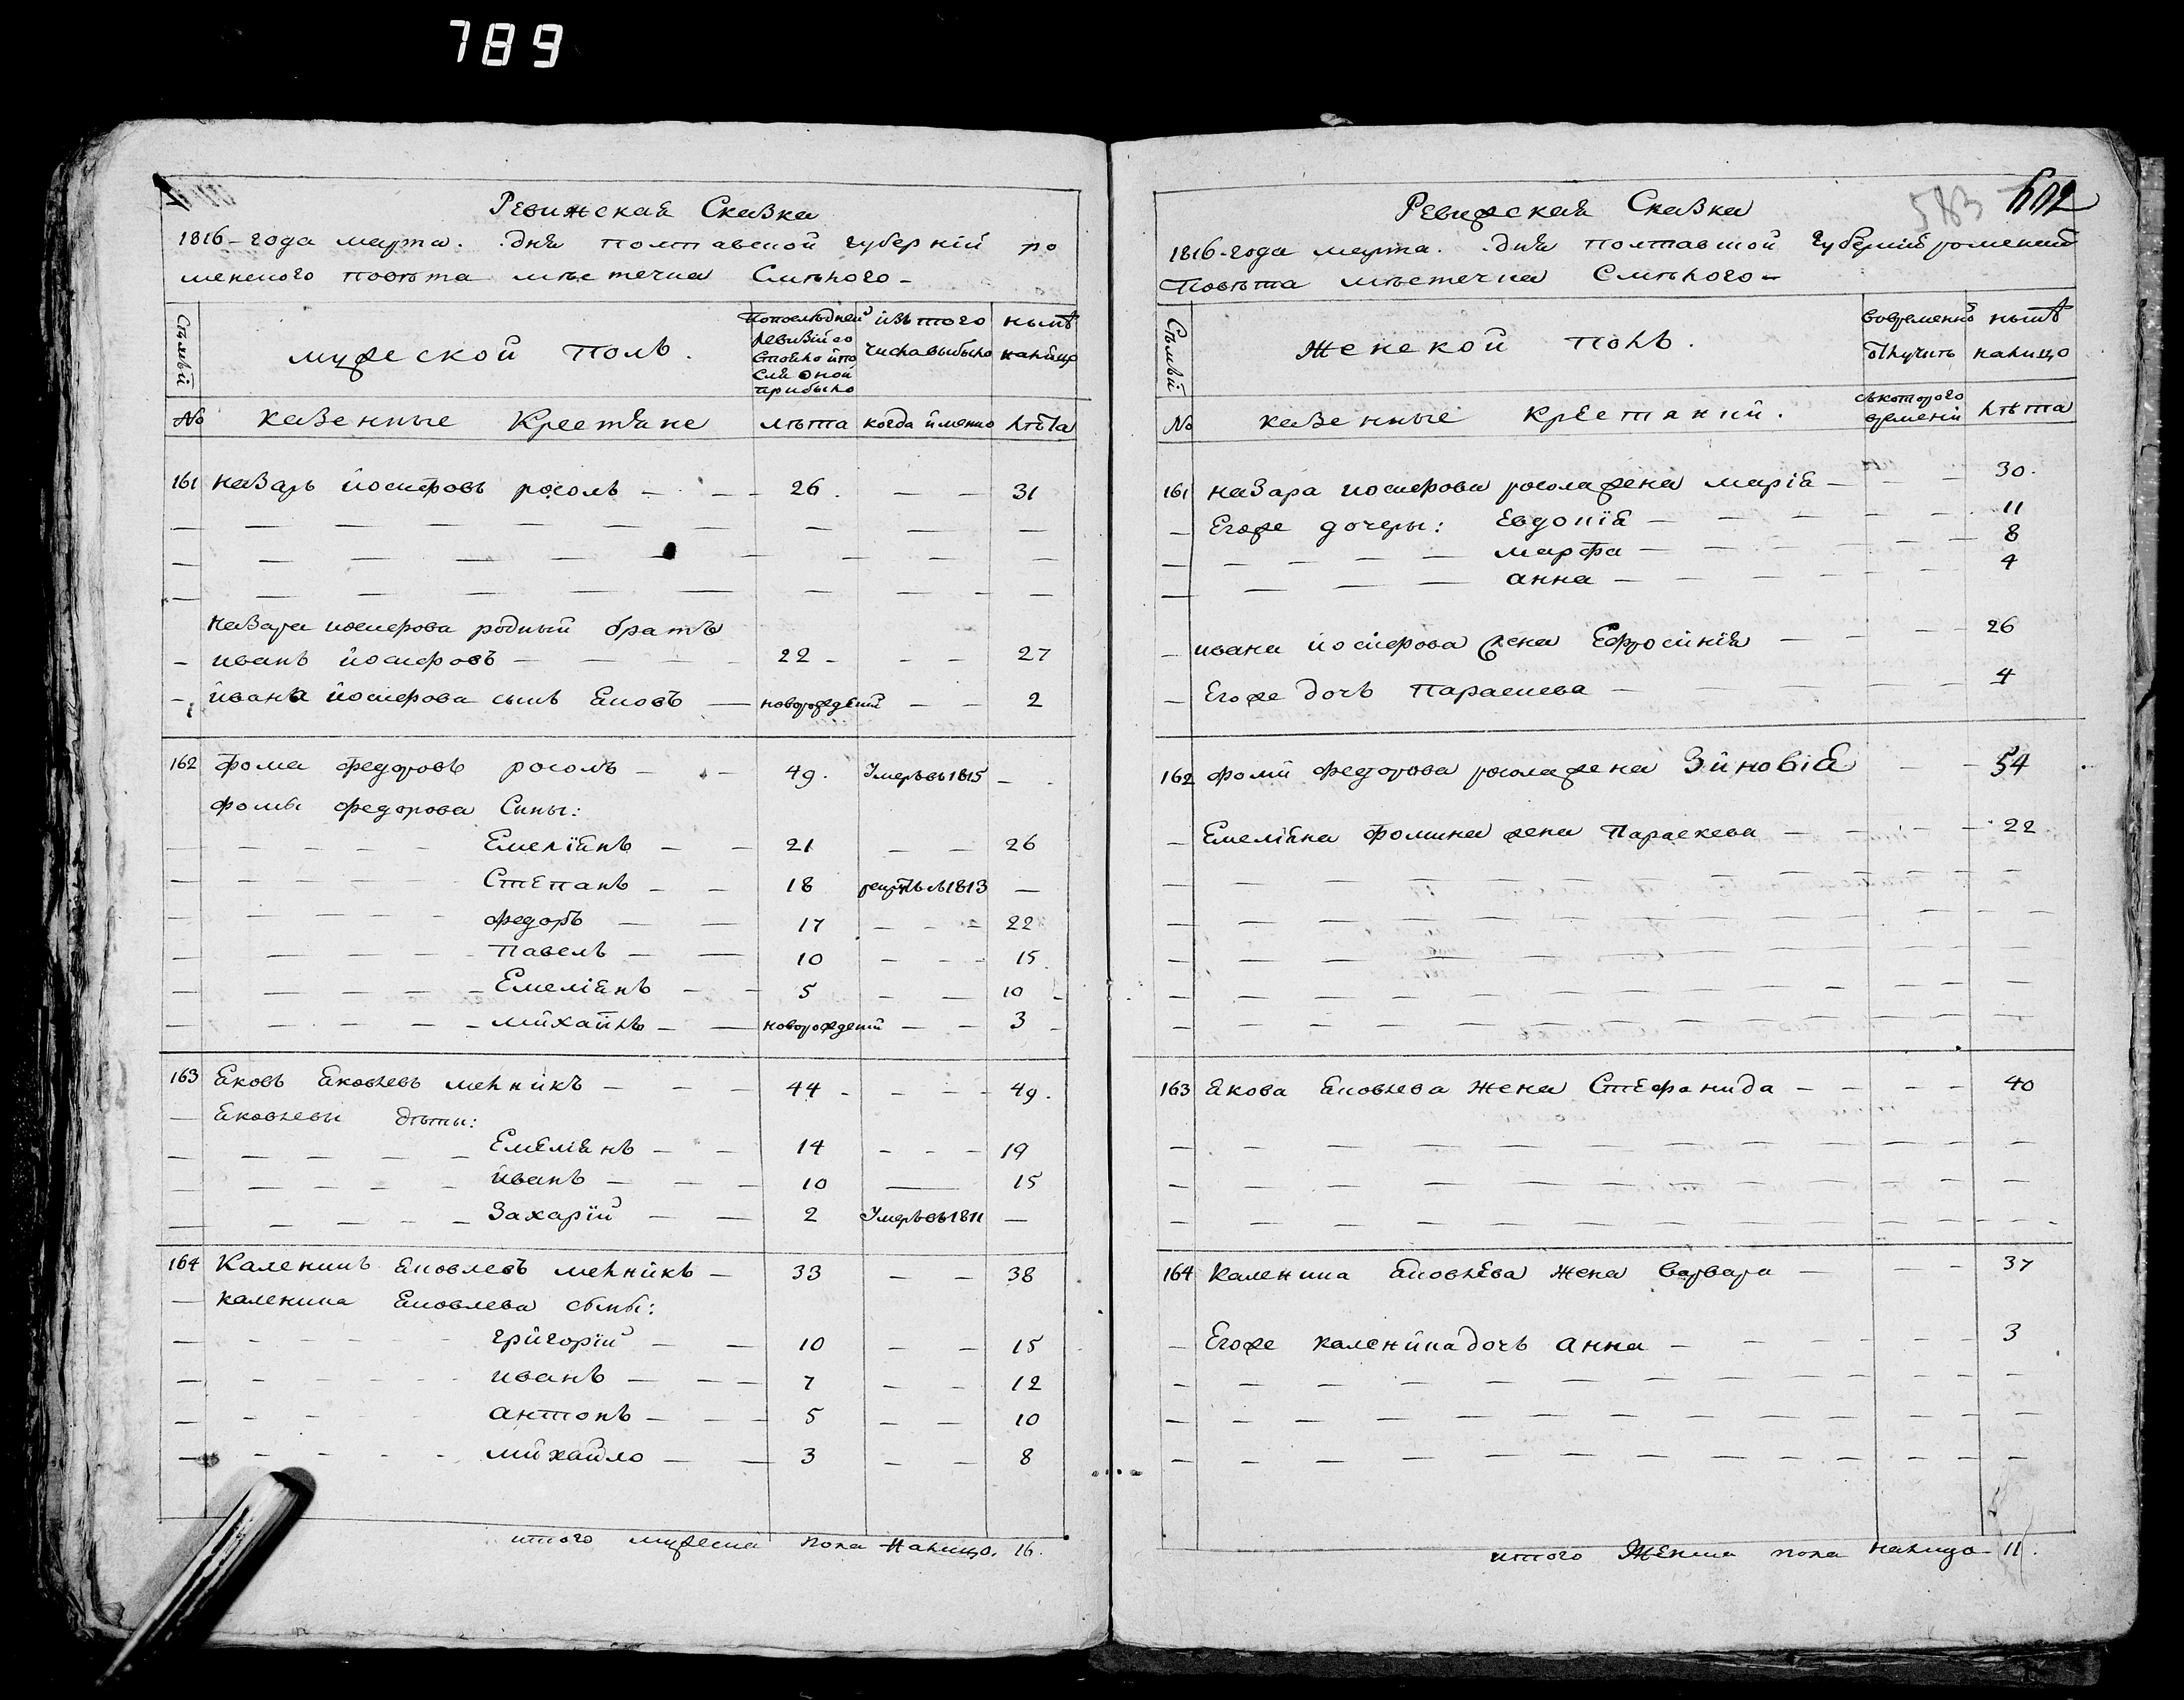 789
Ревижская Сказка
1816-года марта. дня полтавской губерній ро
менского повѣта мѣстечка Смѣлого-
Сѣмьи
мужеской полъ.
По последней ревизіи со стояло и по сля оной прибыло
изъ того числа выбыло
нынѣ налицо
№ казенные Крестяне лѣта когда именно лѣта
161 назаръ йосифовъ росолъ — 26. — — 31
назара иосифова родный братъ
иванъ йосифовъ — 22 - — — 27
ивана йосифова сынъ яковъ — новорожденій — — 2
162 фома федоровъ росолъ — 49. Умеръ въ 1815 —
фомы федорова Сыны:
Емеліянъ — 21 — — 26
Степанъ — 18 рекрутъ въ 1813 —
федоръ — 17 — — 22
павелъ — 10 — — 15
Емеліянъ — 5 — — 10
михайлъ — новорожденій — — 3
163 яковъ яковлевъ мельникъ — 44 - — — 49.
яковлевы дѣты:
Емеліянъ — 14 — — 19
иванъ — 10 — 15
Захарій — 2 Умеръ въ 1811 —
164 Каленикъ яковлевъ мельникъ — 33 — — 38
каленика яковлева сыны:
григорій — 10 — — 15
иванъ — 7 — — 12
антонъ — 5 — — 10
михайло — 3 — — 8
итого мужеска пола налицо. 16.
583 602
Ревижская Сказка
1816-года марта. дня полтавской губерній роменской
Повѣта мѣстечка Смѣлого-
Сѣмьи
Женской полъ.
во временной отлучкѣ
нынѣ налицо
№ казенные крестянкй. съ которого времени лѣта
161 назара иосифова росола жена марія — 30.
Его же дочеры: Евдокія — 11
марфа — 8
анна — 4
ивана йосифова жена Ефросинія — 26
Его же дочь параскева — 4
162 фомы федорова росола жена Зиновія — 54
Емеліяна фомина жена Параскева — 22
163 якова яковлева жена Стефанида — 40
164 каленика яковлева жена варвара — 37
Его же каленика дочь анна — 3
итого Женска пола налицо - 11.